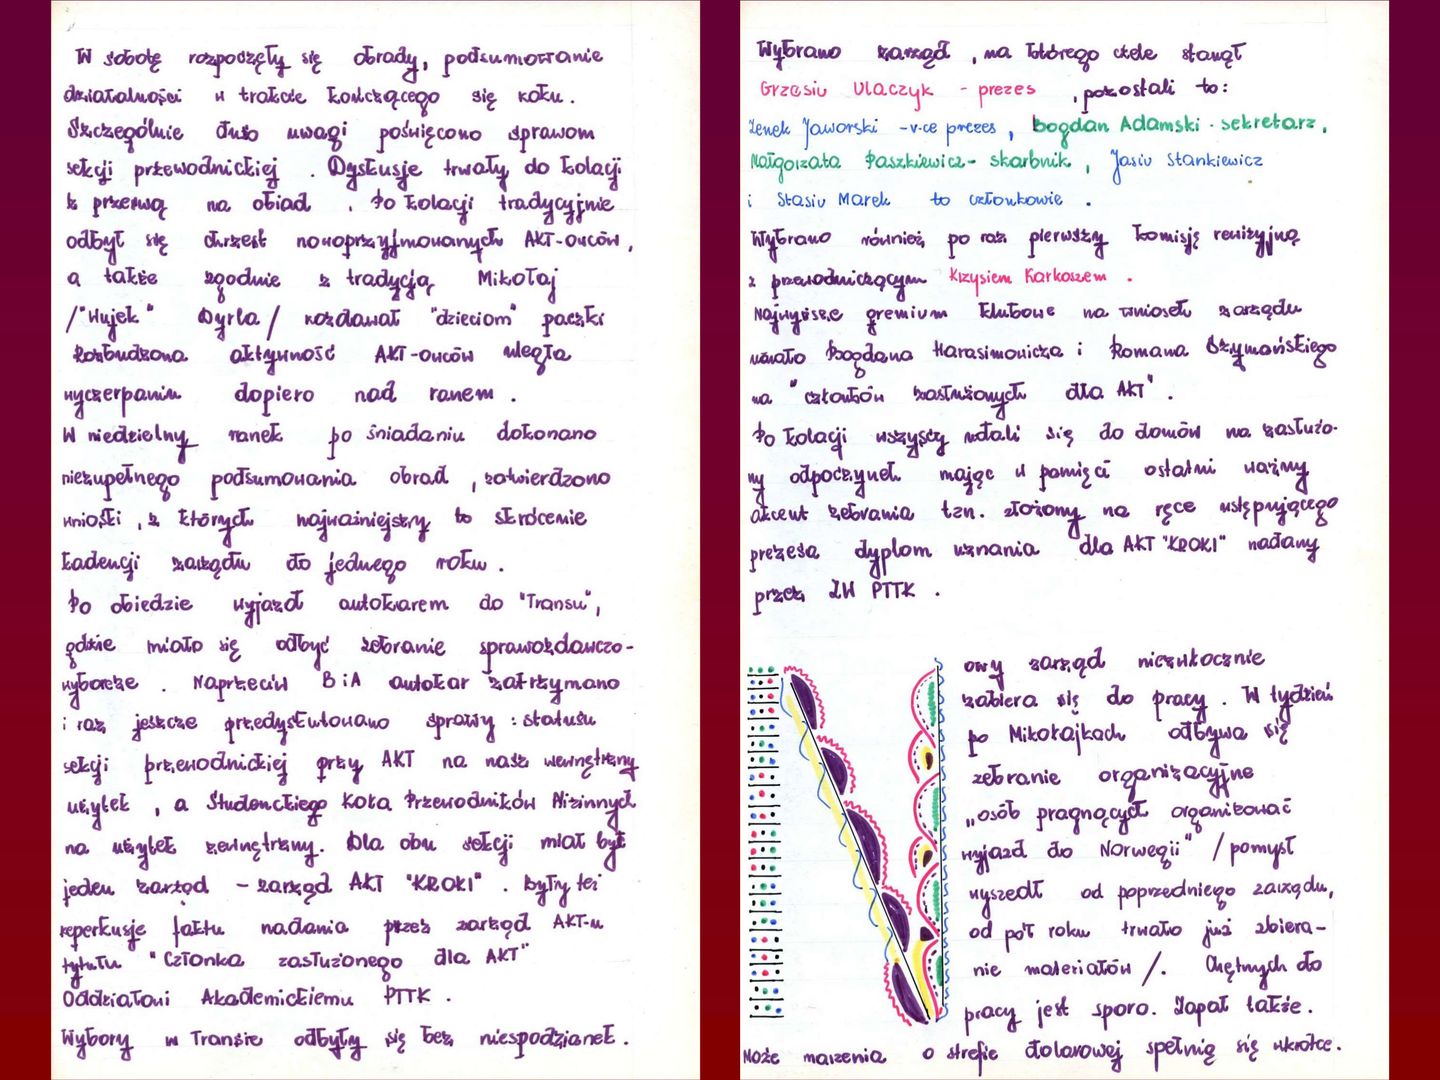 W sobotę rozpoczęły się obrady, podsumowanie
działalności w trakcie kończącego się roku.
Szczególnie dużo uwagi poświęcono sprawom
sekcji przewodnickiej. Dyskusje trwały do kolacji
z przerwą na obiad. Po kolacji tradycyjnie
odbył się chrzest nowoprzyjmowanych AKT-owców,
a także zgodnie z tradycją Mikołaj
/"Wujek" Dyrla/ rozdawał "dzieciom" paczki
Rozbudzona aktywność AKT-owców uległa
wyczerpaniu dopiero nad ranem.
W niedzielny ranek po śniadaniu dokonano
niezupełnego podsumowania obrad, zatwierdzono
wnioski, z których najważniejszy to skrócenie
kadencji zarządu do jednego roku.
Po obiedzie wyjazd autokarem do "Transu",
gdzie miało się odbyć zebranie sprawozdawczo-
wyborcze. Naprzeciw BiA autokar zatrzymano
i raz jeszcze przedyskutowano sprawy: statusu
sekcji przewodnickiej przy AKT na nasz wewnętrzny
użytek, a Studenckiego Koła Przewodników Nizinnych
na użytek zewnętrzny. Dla obu sekcji miał być
jeden zarząd - zarząd AKT "KROKI". Były też
reperkusje faktu nadania przez zarząd AKT-u
tytułu "Członka zasłużonego dla AKT"
Oddziałowi Akademickiemu PTTK.
Wybory w Transie odbyły się bez niespodzianek.
Wybrano zarząd, na którego czele stanął
Grzesiu Ulaczyk - prezes, pozostali to:
Zenek Jaworski - v-ce prezes, bogdan Adamski - sekretarz,
Małgorzata Paszkiewicz - skarbnik, Jasiu Stankiewicz
i Stasiu Marek to członkowie.
Wybrano również po raz pierwszy komisję rewizyjną
z przewodniczącym Krzysiem Karkoszem.
Najwyższe gremium klubowe na wniosek zarządu
uznało Bogdana Harasimowicza i Romana Szymańskiego
na "członków zasłużonych dla AKT".
Po kolacji wszyscy udali się do domów na zasłużo-
ny odpoczynek mając w pamięci ostatni ważny
akcent zebrania tzn. złożony na ręce ustępującego
prezesa dyplom uznania dla AKT "KROKI" nadany
przez ZW PTTK.
owy zarząd niezwłocznie
zabiera się do pracy. W tydzień
po Mikołajkach odbywa się
zebranie organizacyjne
„osób pragnących organizować
wyjazd do Norwegii" /pomysł
wyszedł od poprzedniego zarządu,
od pół roku trwało już zbiera-
nie materiałów/. Chętnych do
pracy jest sporo. Zapał także.
Może marzenia o strefie dolarowej spełnią się wkrótce.